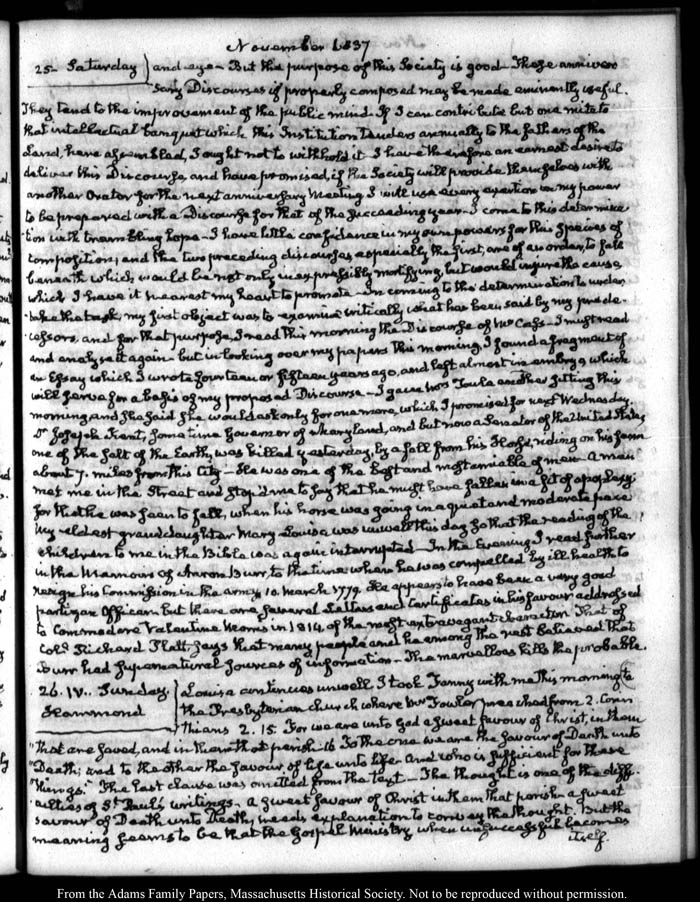 November 1837
25. Saturday } and-aye- But the purpose of this Society is good. These anniver
sary Discourses if properly composed may be made eminently useful.
They tend to the improvement of the public mind. If I can contribute but one mite to
that intellectual banquet which this Institution tenders annually to the fathers of the
Land, here assembled, I ought not to withhold it. I have therefore an earnest desire to
deliver this Discourse, and have promised, if the Society will provide themselves with
another Orator for the next anniversary Meeting I will use every exertion in my power
to be prepared with a Discourse for that of the succeeding year. I come to this determina
tion with trembling hope- I have little confidence in my own powers for this species of
composition; and the two preceding discourses, especially the first, are of an order, to fall
beneath which, would be not only inexpressibly mortifying, but would injure the cause
which I have it nearest my heart to promote- In coming to the determination to under
take the task, my first object was to examine critically what has been said by my prede-
cessors, and for that purpose, I read this morning the Discourse of Mr Cass- I must read
and analyse it again- but in looking over my papers this morning, I found a fragment of
an Essay which I wrote fourteen or fifteen years ago, and left almost in embryo, which
will serve for a basis of my proposed Discourse- I gave Mrs Towle another sitting this
morning, and she said she would ask only for one more, which I promised for next Wednesday.
Dr Joseph Kent, some time Governor of Maryland, and but now a Senator of the United States,
one of the salt of the Earth, was killed yesterday, by a fall from his Horse, riding on his farm
about 7. miles from this City- He was one of the best and most amiable of men- A man
met me in the Street and stop'd me to say that he must have fallen in a fit of apoplexy
for that he was seen to fall, when his horse was going in a quiet and moderate pace
My eldest grand daughter Mary Louisa was unwell this day so that the reading of the
children to me in the Bible was again interrupted- In the Evening I read further
in the Memoirs of Aaron Burr to the time when he was compelled by ill health to
resign his Commission in the army, 10. March 1779. He appears to have been a very good
partizan Officer, but there are several Letters and Certificates in his favour addressed
to Commodore Valentine Morris in 1814. of the most extravagant character. That of
Colo. Richard Platt says that many people and he among the rest believed that
Burr had supernatural sources of information- The marvellous kills the probable.
26. IV.. Sunday. } Louisa continues unwell. I took Fanny with me this morning to
Hammond } the Presbyterian church where Mr Fowler preached from 2. Corin
thians 2. 15. For we are unto God a sweet savour of Christ, in them
"that are saved, and in them that perish- 16 To the one we are the savour of Death unto
"Death; and to the other the savour of life unto life- And who is sufficient for these
"things." The last clause was omitted from the text- The thought is one of the diffi-
culties of St Paul's writings- a sweet savour of Christ in them that perish- a sweet
savour of Death unto Death, needs explanation to convey the thought. But the
meaning seems to be that the Gospel Ministry when unsuccessful becomes
itself.
From the Adams Family Papers, Massachusetts Historical Society. Not to be reproduced without permission.